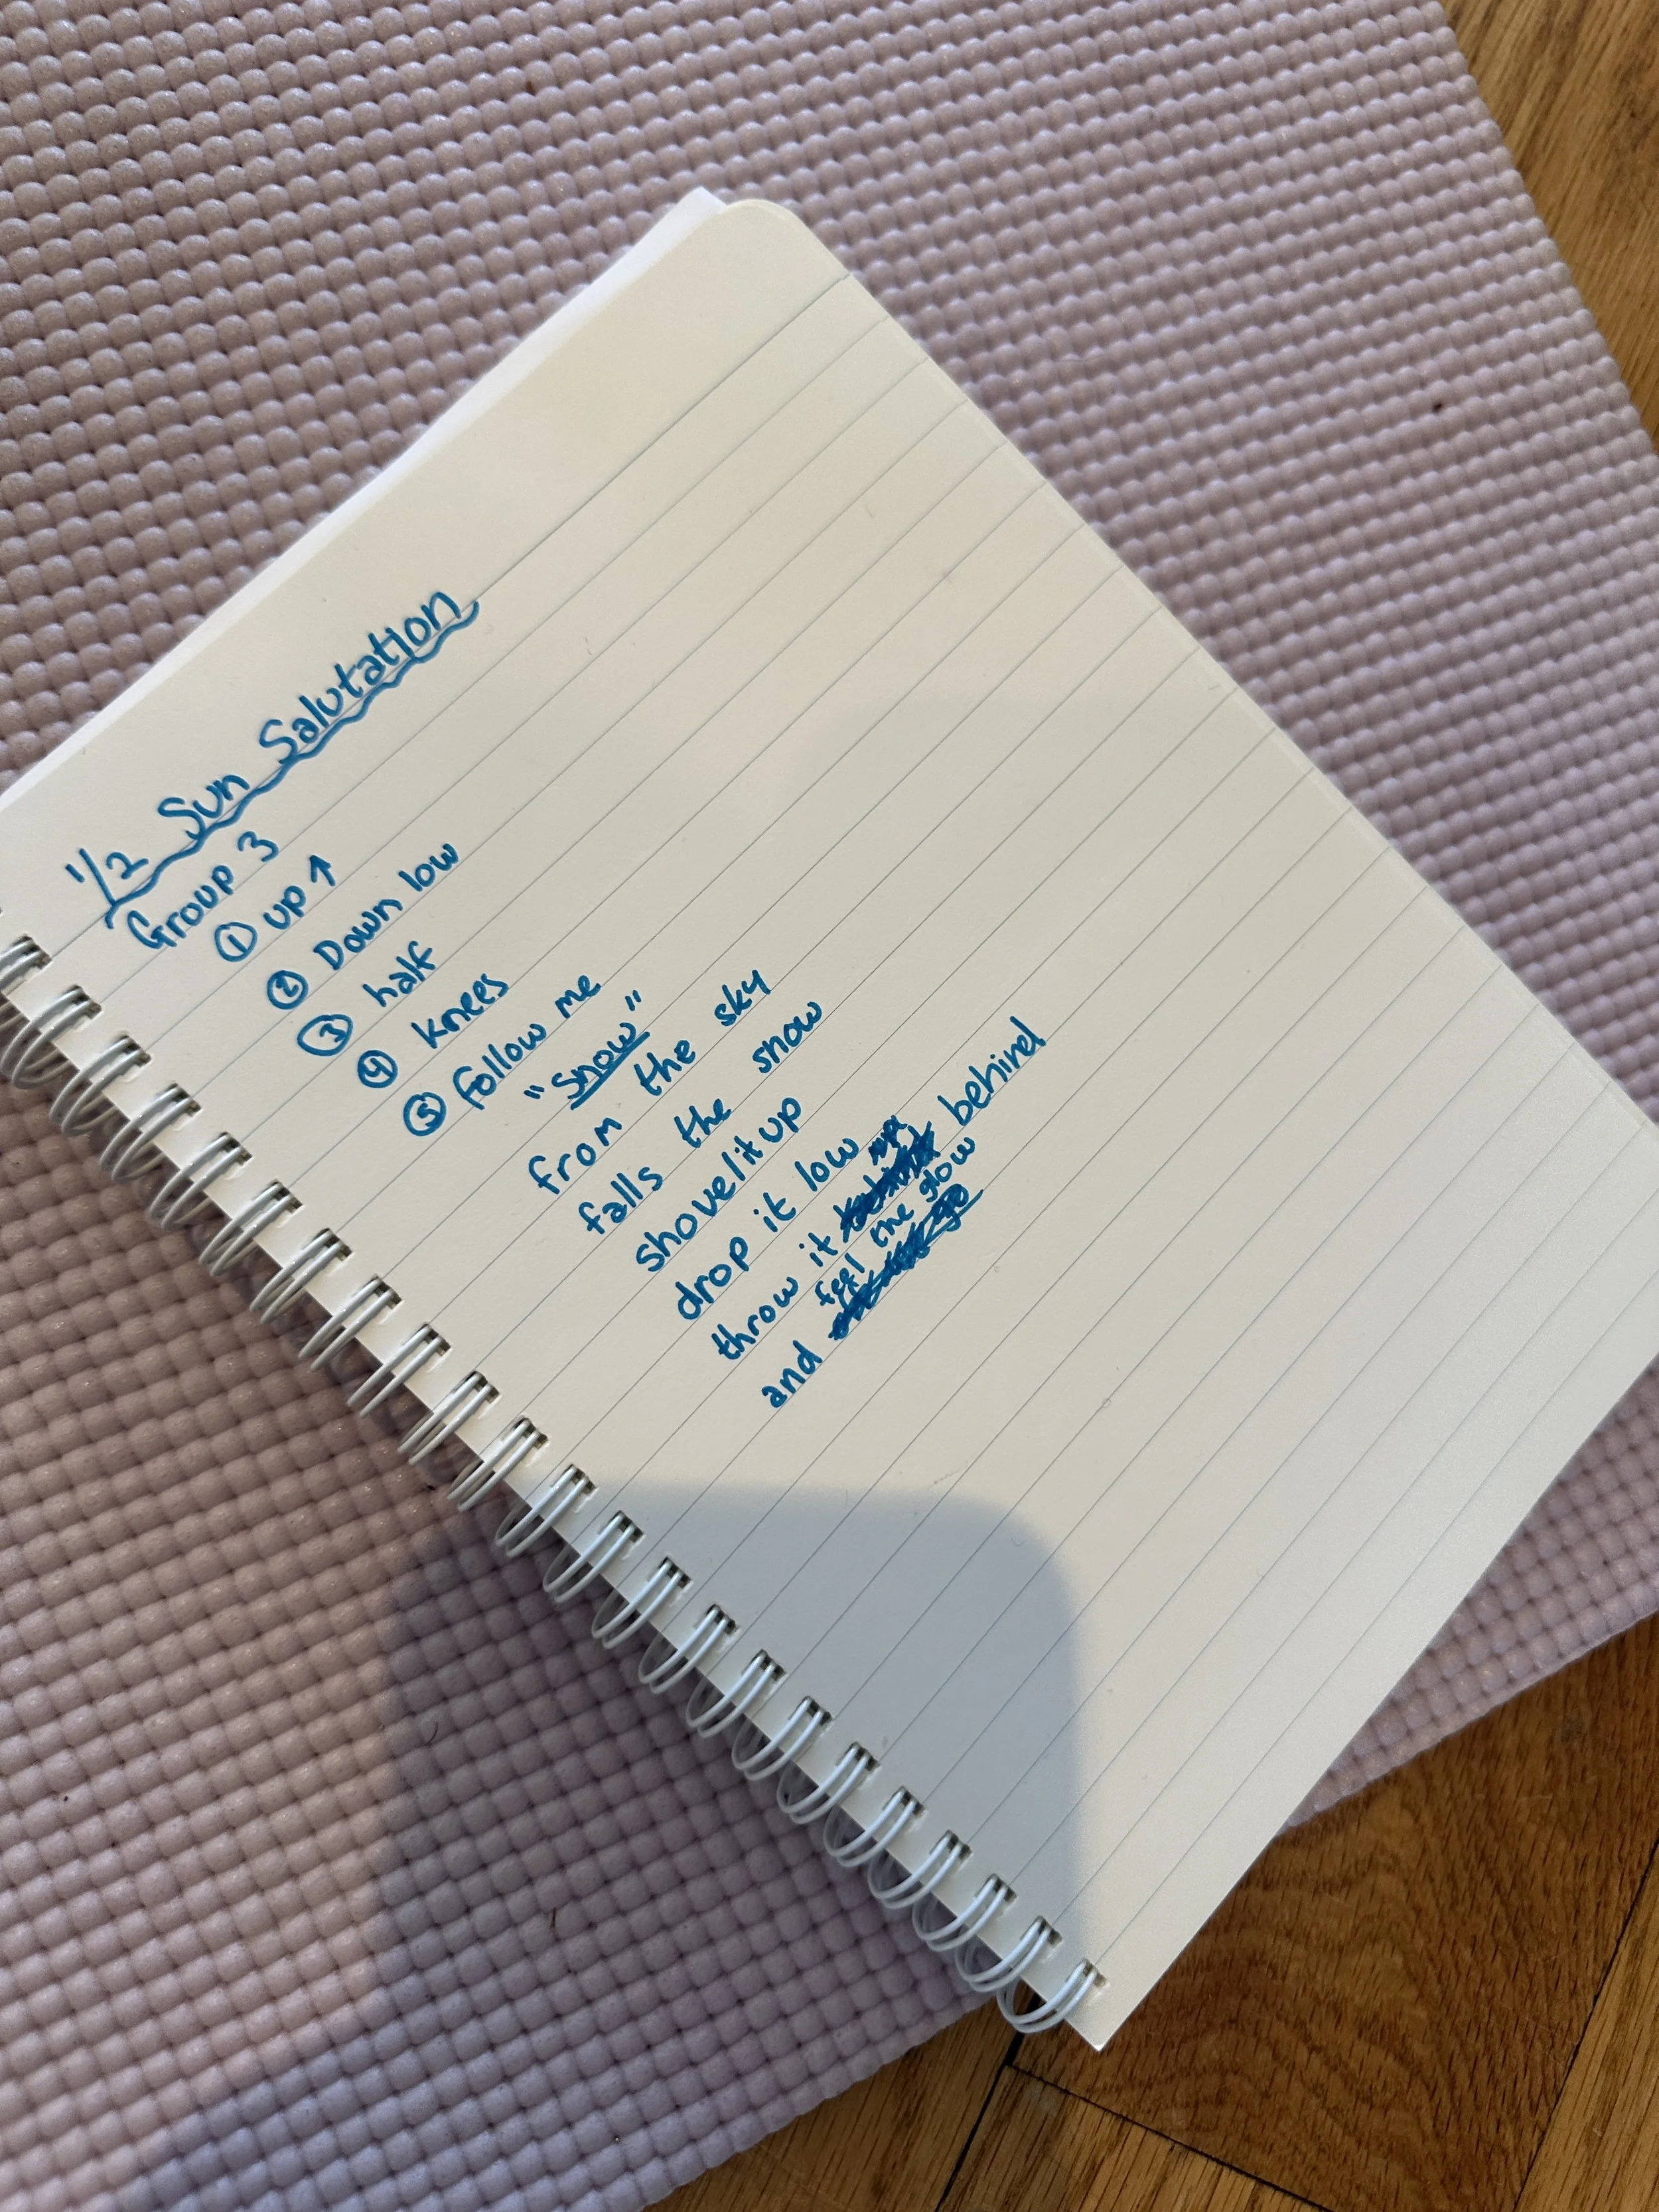 1/2 Sun Salutation
Group 3
① up ↑
② Down low
③ half
④ knees
⑤ follow me
"Snow"
from the sky
falls the snow
shovel it up
drop it low
throw it behind
and feel the glow